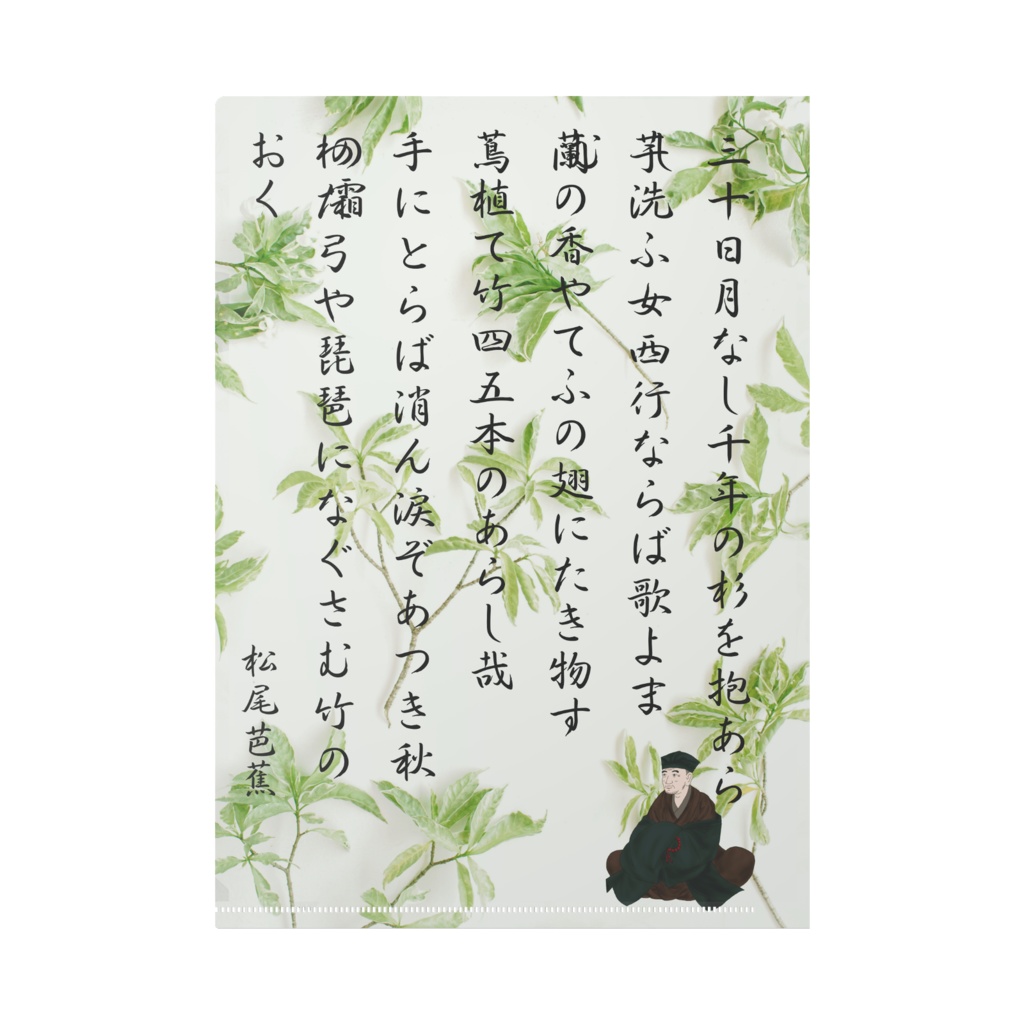 三十日月なし千年の杉を抱あら
芋洗ふ女西行ならば歌よま
蘭の香やてふの翅にたき物す
蔦植て竹四五本のあらし哉
手にとらば消ん涙ぞあつき秋
の霜弓や琵琶になぐさむ竹の
おく
松尾芭蕉